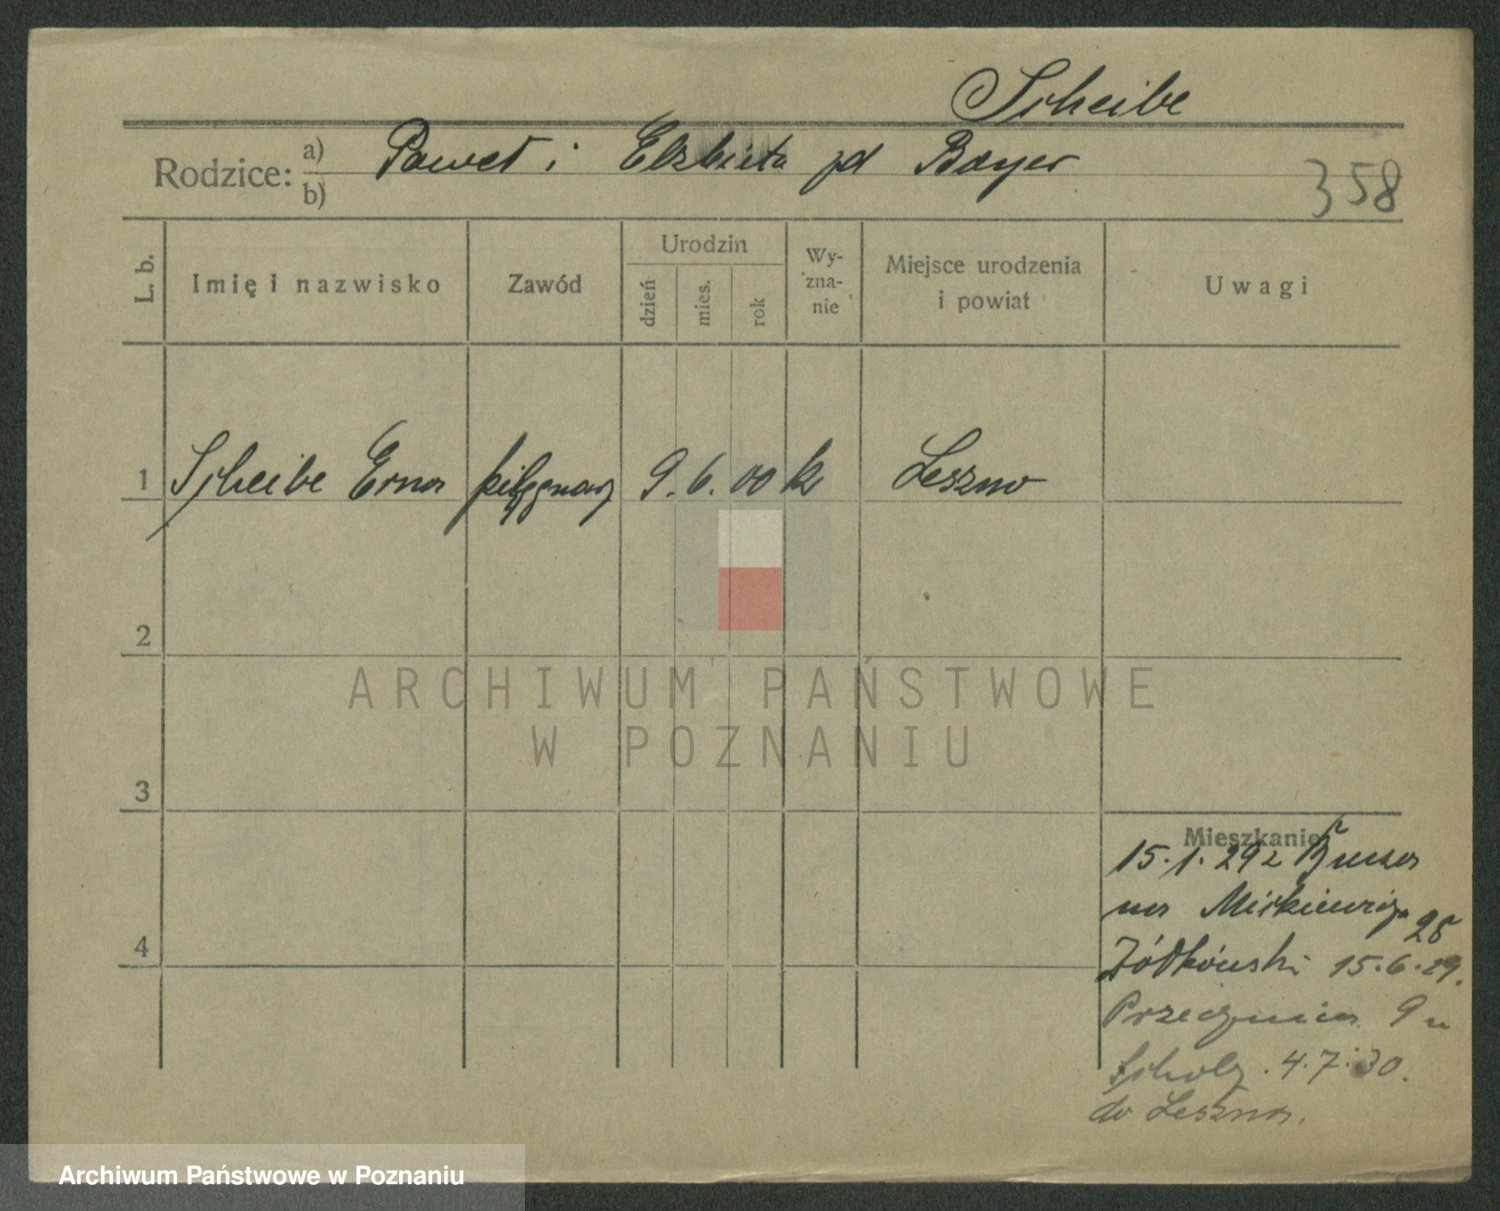 Scheibe
Rodzice: a) Paweł i Elżbieta zd Bayer
b)
358
L. b. Imię i nazwisko Zawód Urodzin dzień mies. rok Wy-zna-nie Miejsce urodzenia i powiat Uwagi
1 Scheibe Erna pielęgniar 9. 6. 00 k Leszno
2
3
4
Mieszkanie
15.1.29 z
na Mickiewicza 25
15.6.29.
9 u
Scholz. 4.7.30.
do Leszna.
ARCHIWUM PAŃSTWOWE
W POZNANIU
Archiwum Państwowe w Poznaniu